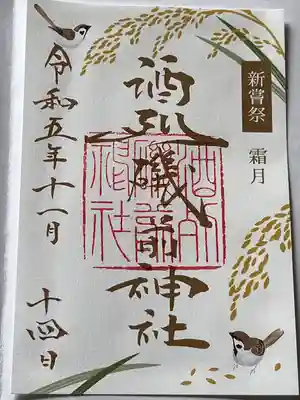 新嘗祭
霜月
酒列磯前神社
酒列
磯前
神社
令和五年十一月 十四日